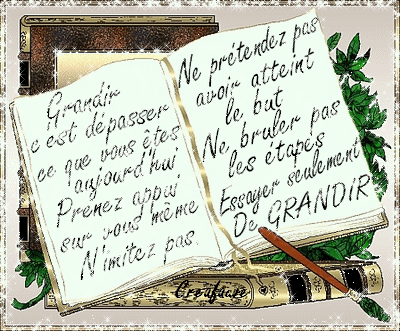 Grandir
c'est dépasser
ce que vous êtes
aujourd'hui
Prenez appui
sur vous même
N'imitez pas.
Ne prétendez pas
avoir atteint
le but
Ne bruler pas
les étapes
Essayer seulement
De GRANDIR